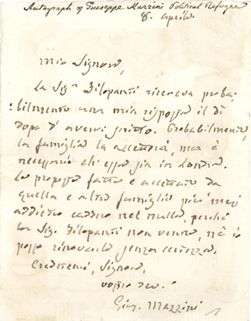 Autograph of Giuseppe Mazzini Political Refugee
Mio Signore,
La Sigra Filopanti riceveva proba-
bilmente una mia risposta il dì
dopo d'avervi scritto. Probabilmente,
la famiglia la accetterà, ma è
necessario ch'essa sia in Londra.
La proposta fatta e accettata da
quella e altra famiglia più mesi
addietro cadde nel nulla, perché
la Sig. Filopanti non venne, nè io
posso rinnovarla senza certezza.
Credetemi, Signore,
vostro dev.
Gius. Mazzini